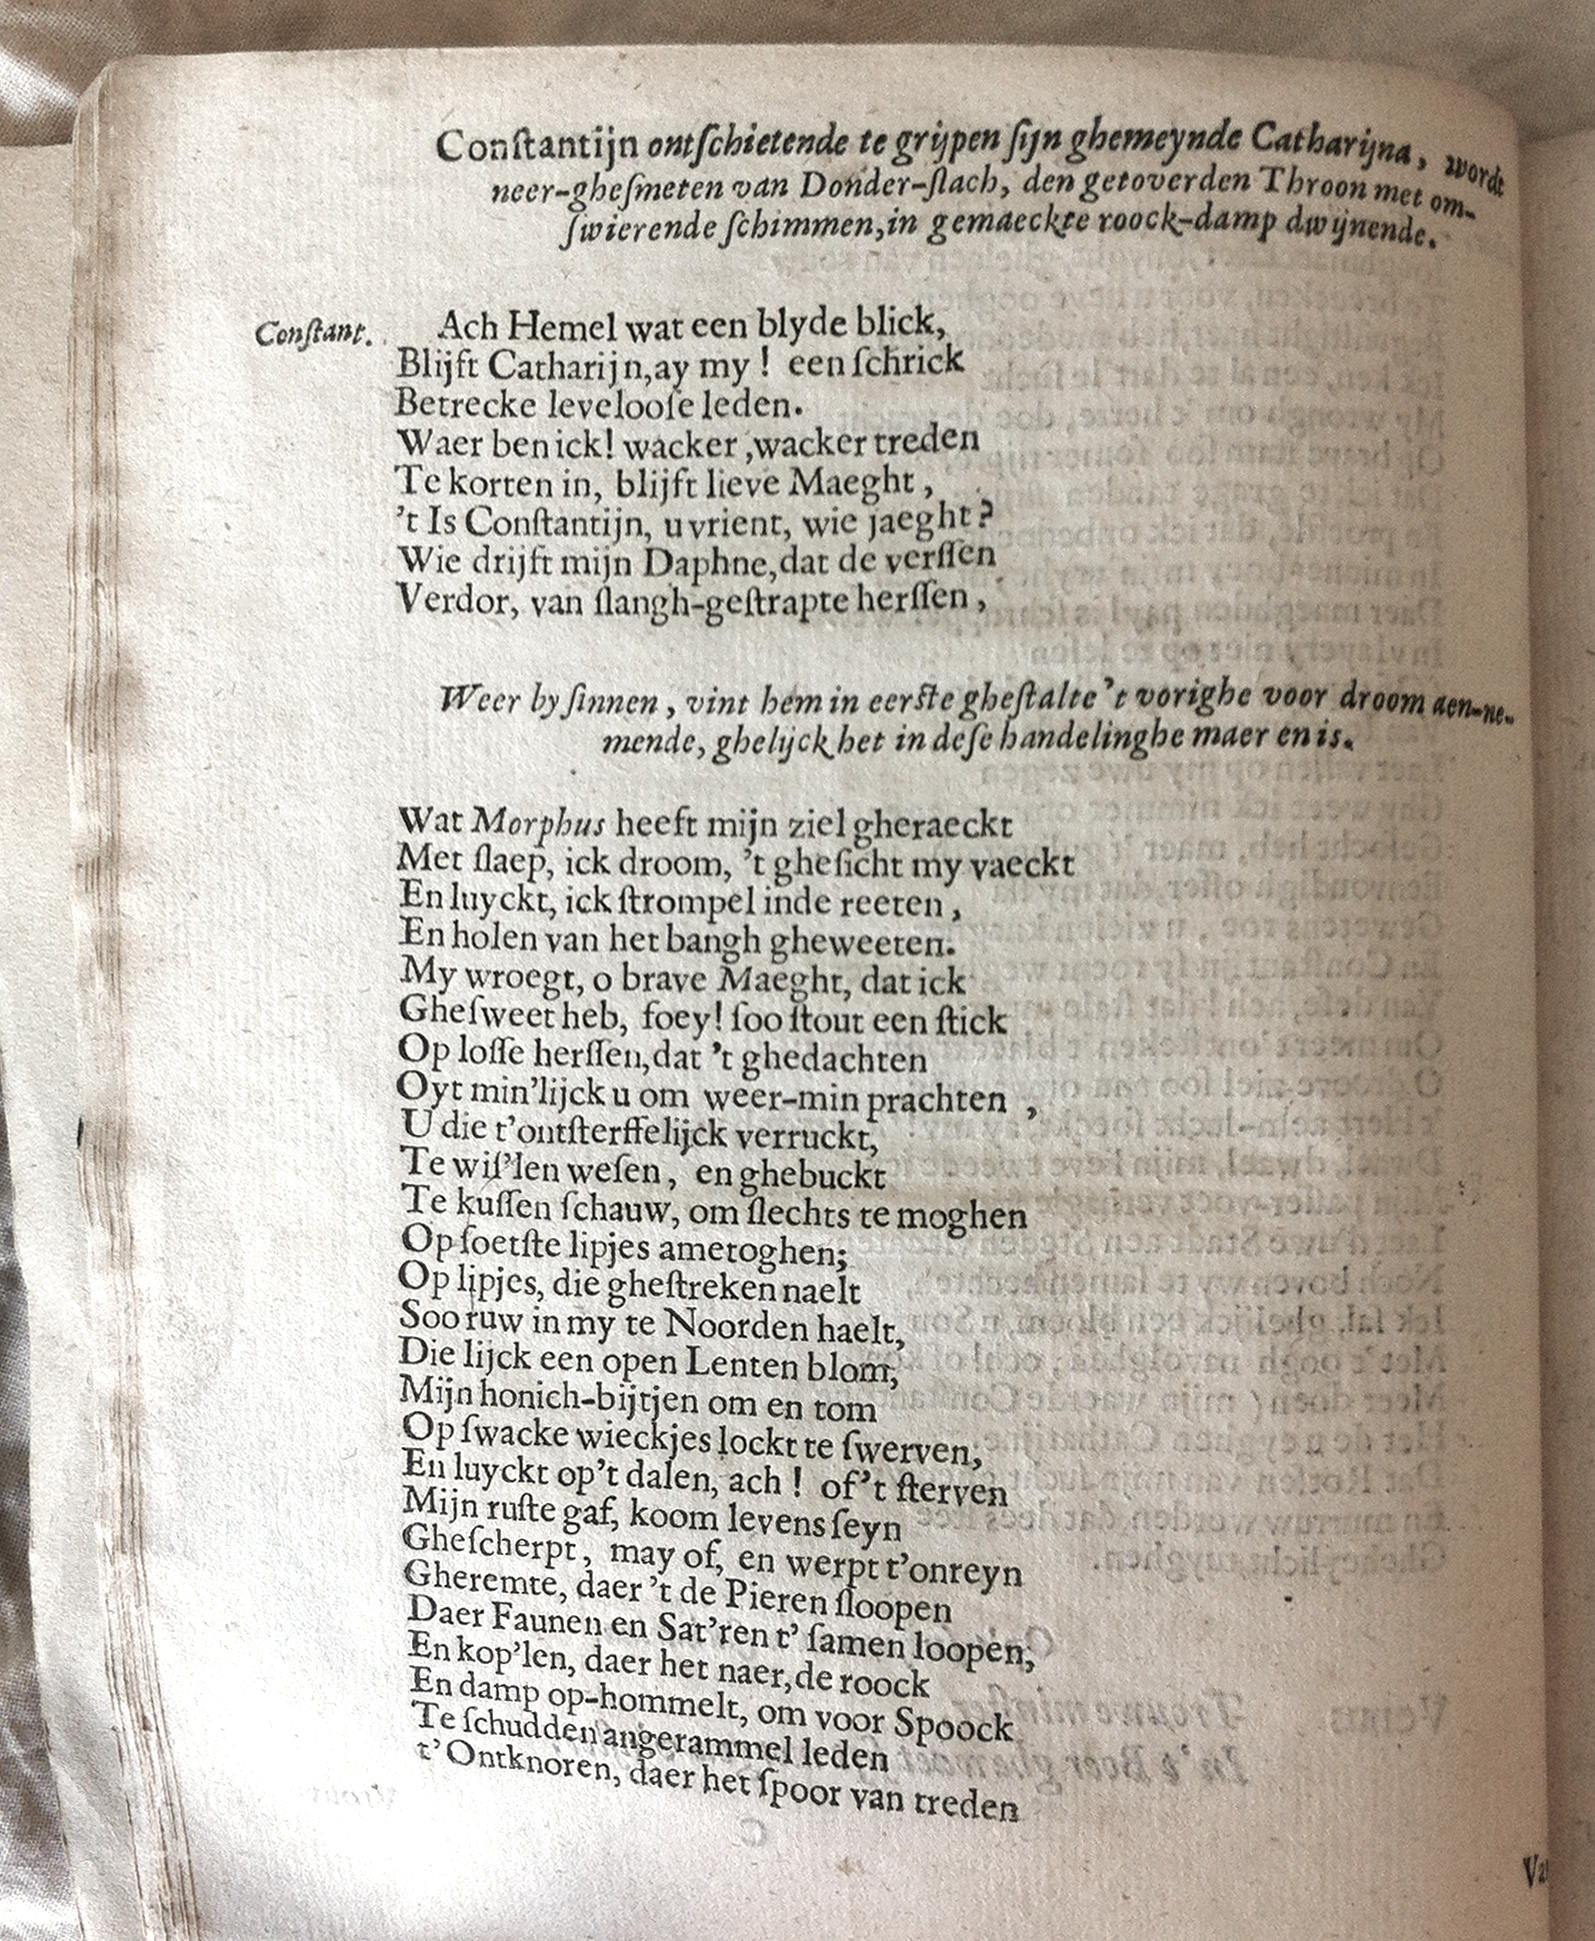 Conſtantijn ontſchietende te grijpen ſijn ghemeynde Catharijna, wordt
neer-gheſmeten van Donder-ſlach, den getoverden Throon met om-
ſwierende ſchimmen, in gemaeckte roock-damp dwijnende.
Conſtant. Ach Hemel wat een blyde blick,
Blijft Catharijn, ay my! een ſchrick
Betrecke levelooſe leden.
Waer ben ick! wacker, wacker treden
Te korten in, blijft lieve Maeght,
't Is Conſtantijn, u vrient, wie jaeght?
Wie drijft mijn Daphne, dat de verſſen
Verdor, van ſlangh-geſtrapte herſſen,
Weer by ſinnen, vint hem in eerſte gheſtalte 't vorighe voor droom aen-ne-
mende, ghelijck het in deſe handelinghe maer en is.
Wat Morphus heeft mijn ziel gheraeckt
Met ſlaep, ick droom, 't gheſicht my vaeckt
En luyckt, ick ſtrompel inde reeten,
En holen van het bangh gheweeten.
My wroegt, o brave Maeght, dat ick
Gheſweet heb, foey! ſoo ſtout een ſtick
Op loſſe herſſen, dat 't ghedachten
Oyt min'lijck u om weer-min prachten,
U die t'ontſterffelijck verruckt,
Te wiſ'len weſen, en ghebuckt
Te kuſſen ſchauw, om ſlechts te moghen
Op ſoetſte lipjes ametoghen;
Op lipjes, die gheſtreken naelt
Soo ruw in my te Noorden haelt,
Die lijck een open Lenten blom,
Mijn honich-bijtjen om en tom
Op ſwacke wieckjes lockt te ſwerven,
En luyckt op't dalen, ach! of't ſterven
Mijn ruſte gaf, koom levens ſeyn
Gheſcherpt, may of, en werpt t'onreyn
Gheremte, daer 't de Pieren ſloopen
Daer Faunen en Sat'ren t' ſamen loopen,
En kop'len, daer het naer, de roock
En damp op-hommelt, om voor Spoock
Te ſchudden angerammel leden
t'Ontknoren, daer het ſpoor van treden